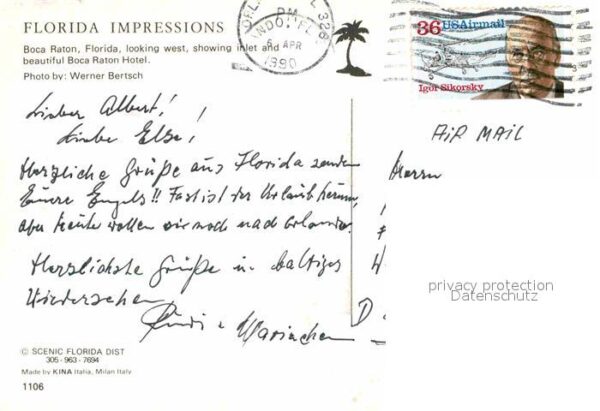 FLORIDA IMPRESSIONS
Boca Raton, Florida, looking west, showing inlet and
beautiful Boca Raton Hotel.
Photo by: Werner Bertsch
PM
6 APR
1990
36 USAirmail
Igor Sikorsky
AIR MAIL
Lieber Albert!
Liebe Else!
Herzliche Grüße aus Florida senden
Euere Engels!! Fast ist der Urlaub herum,
aber heute wollen wir noch nach Orlando.
Herzlichste Grüße u. baldiges
Wiedersehen
Herrn
H
D
privacy protection
Datenschutz
© SCENIC FLORIDA DIST
305-963-7694
Made by KINA Italia, Milan Italy
1106